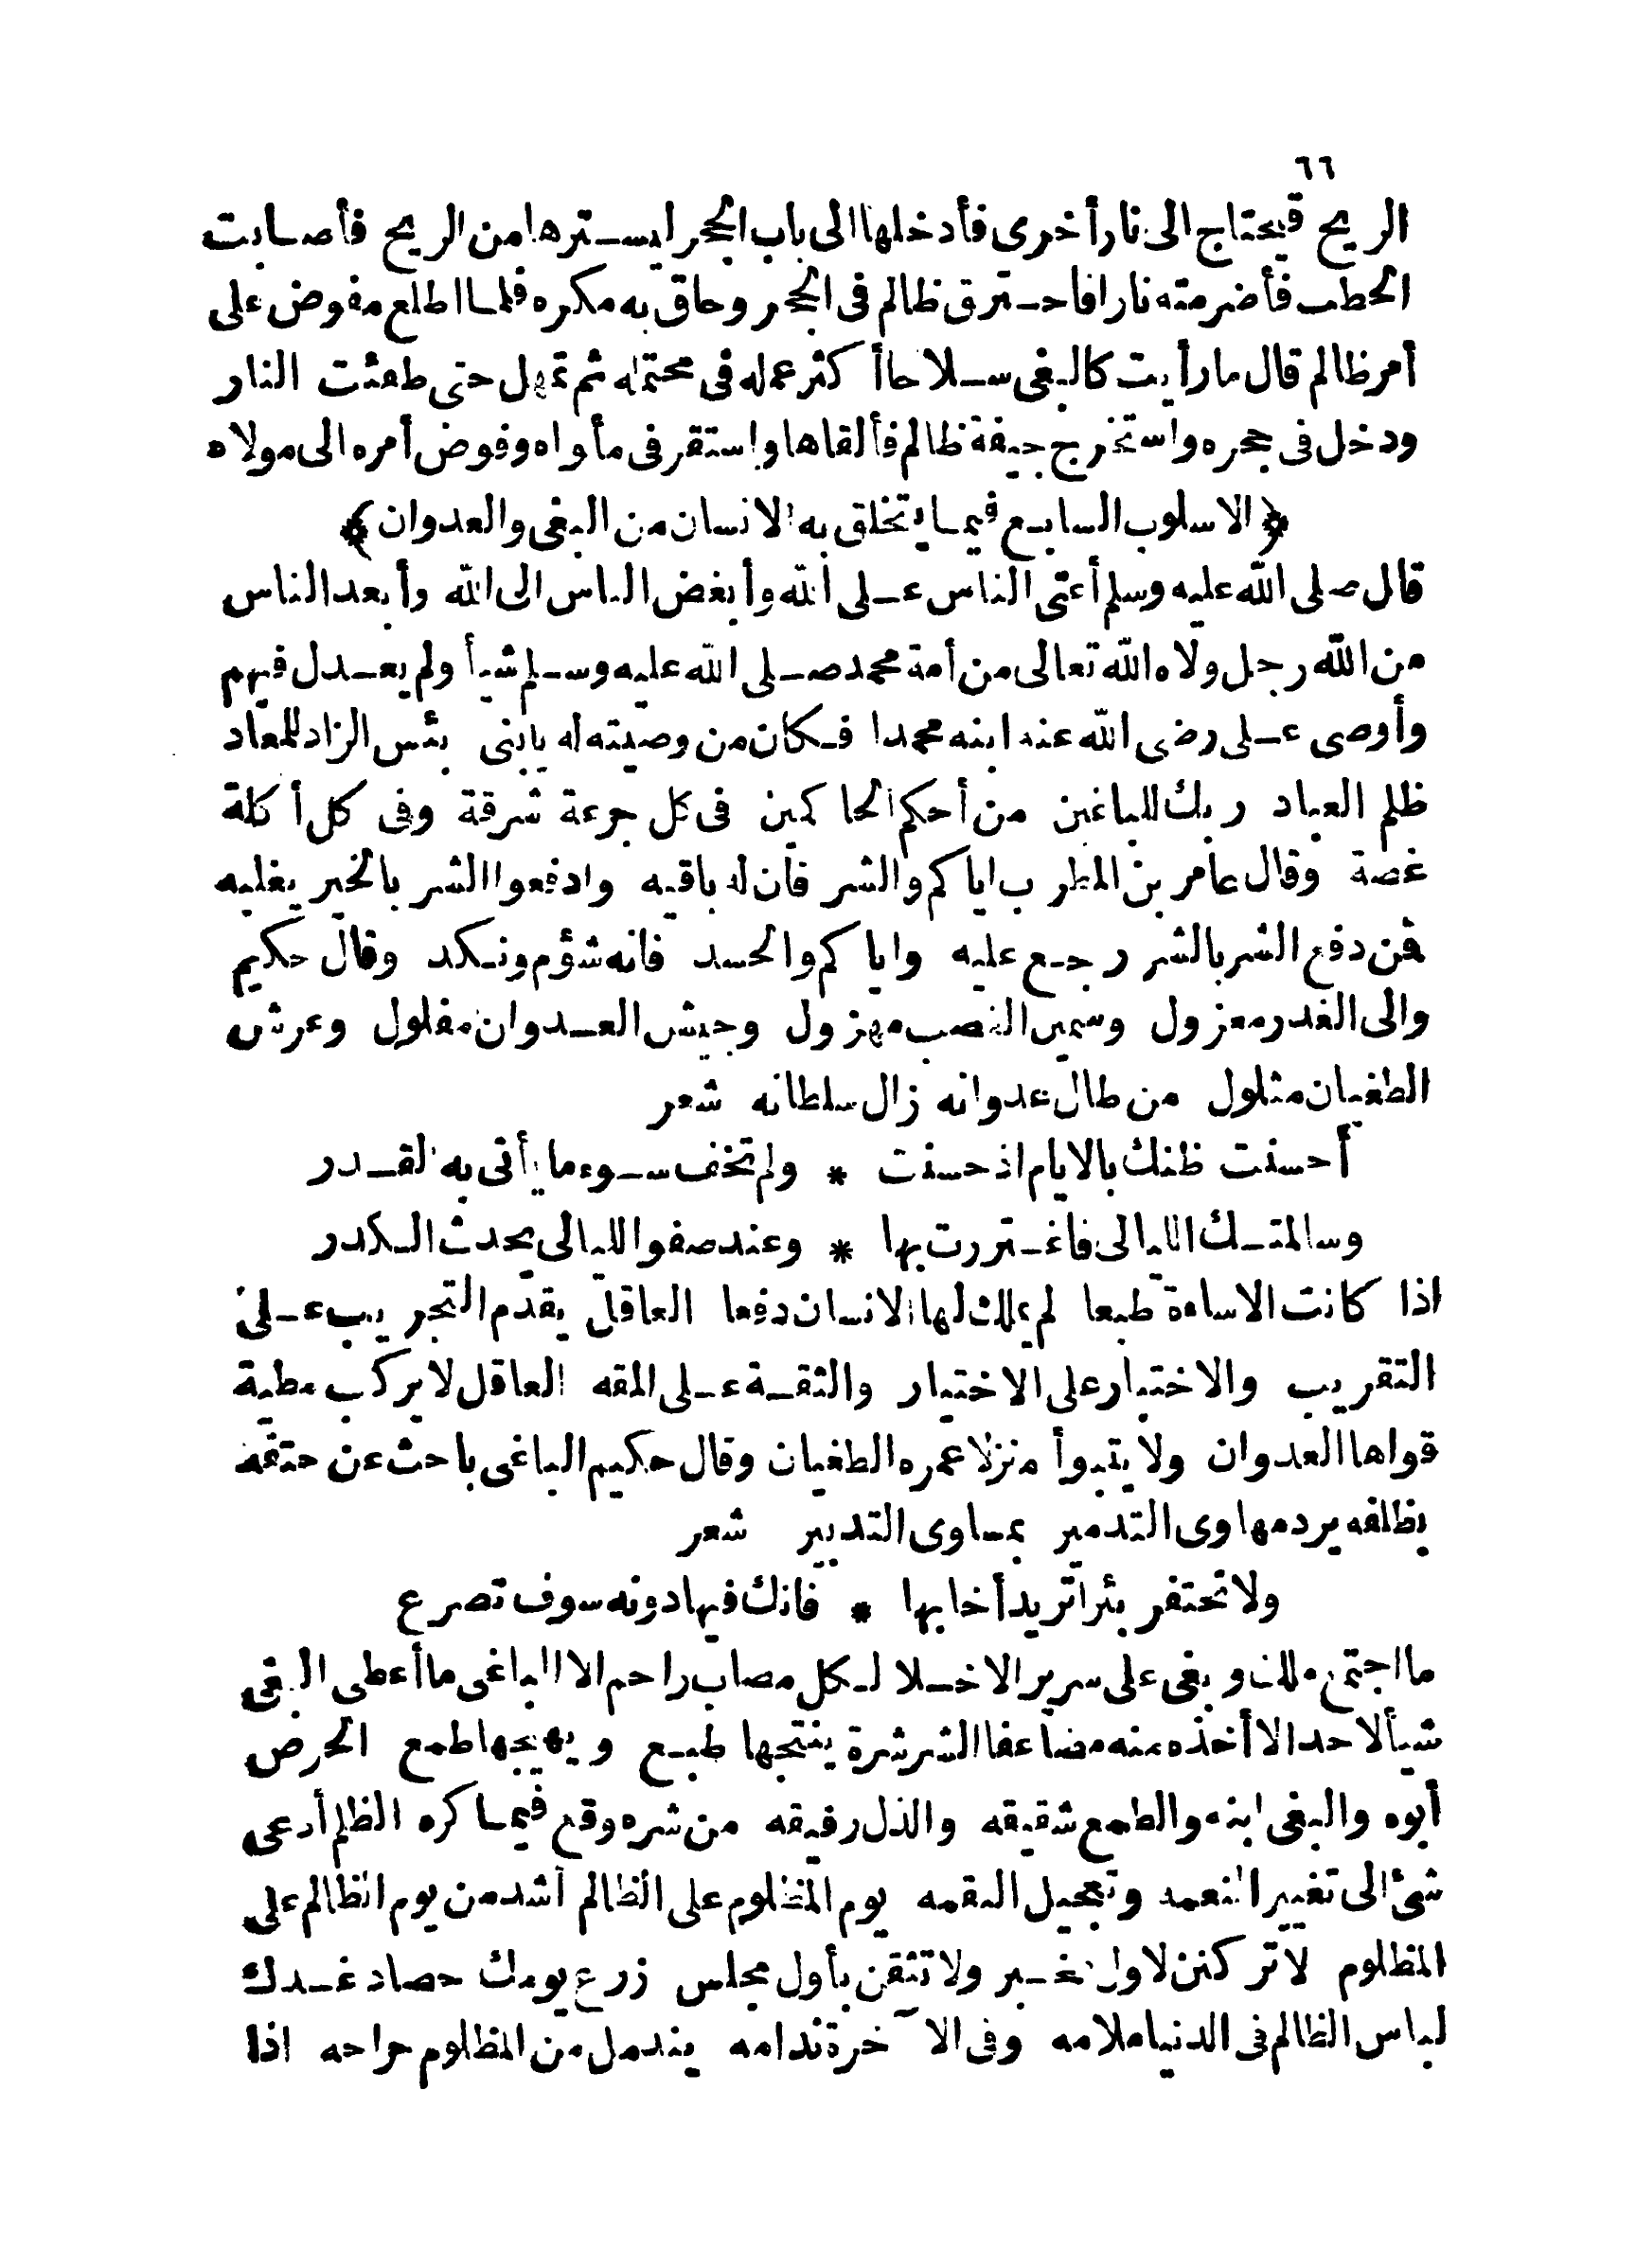 ٦٦
الريح فيحتاج الى نار أخرى فأدخلها الى باب الجحر ليسترها من الريح فأصابت
الحطب فأضرمته نارا فاحترق ظالم فى الجحر وحاق به مكره فلما اطلع مفوض على
أمر ظالم قال ما رأيت كالبغى سلاحا أكثر عمله فى محتمله ثم تمهل حتى طفئت النار
ودخل فى جحره واستخرج جيفة ظالم فألقاها واستقر فى مأواه وفوض أمره الى مولاه
﴿الاسلوب السابع فيما يتخلق به الانسان من البغى والعدوان﴾
قال صلى الله عليه وسلم أعتى الناس على الله وأبغض الناس الى الله وأبعد الناس
من الله رجل ولاه الله تعالى من أمة محمد صلى الله عليه وسلم شيأ ولم يعدل فيهم
وأوصى على رضى الله عنه ابنه محمدا فكان من وصيته له يابنى بئس الزاد للمعاد
ظلم العباد ربك للباغين من أحكم الحاكمين فى كل جرعة شرقة وفى كل أكلة
غصة وقال عامر بن الظرب اياكم والشر فان له باقيه وادفعوا الشر بالخير يغلبه
فمن دفع الشر بالشر رجع عليه واياكم والحسد فانه شؤم ونكد وقال حكيم
والى الغدر معزول وسمين الغصب مهزول وجيش العدوان مفلول وعرش
الطغيان مثلول من طال عدوانه زال سلطانه شعر
أحسنت ظنك بالايام اذ حسنت * ولم تخف سوء ما يأتى به القدر
وسالمتك الليالى فاغتررت بها * وعند صفو الليالى يحدث الكدر
اذا كانت الاساءة طبعا لم يملك لها الانسان دفعا العاقل يقدّم التجريب على
التقريب والاختبار على الاختيار والثقة على المقه العاقل لا يركب مطية
قواها العدوان ولا يتبوأ منزلا عمره الطغيان وقال حكيم الباغى باحث عن حتفه
بظلفه يرد مهاوى التدمير بمساوى التدبير شعر
ولا تحتفر بئرا تريد أخا بها * فانك فيها دونه سوف تصرع
ما اجتمع ملك وبغى على سرير الا خلا لكل مصاب راحم الا الباغى ما أعطى البغى
شيأ لاحد الا أخذه منه مضاعفا الشر شرة ينتجها طبع ويهيجها طمع الحرص
أبوه والبغى ابنه والطمع شقيقه والذل رفيقه من شره وقع فيما كره الظلم أدعى
شئ الى تغيير النعمه وتعجيل النقمه يوم المظلوم على الظالم أشد من يوم الظالم على
المظلوم لا تركنن لاول مخبر ولا تثقن بأول مجلس زرع يومك حصاد غدك
لباس الظالم فى الدنيا ملامه وفى الآخرة ندامه يندمل من المظلوم جراحه اذا